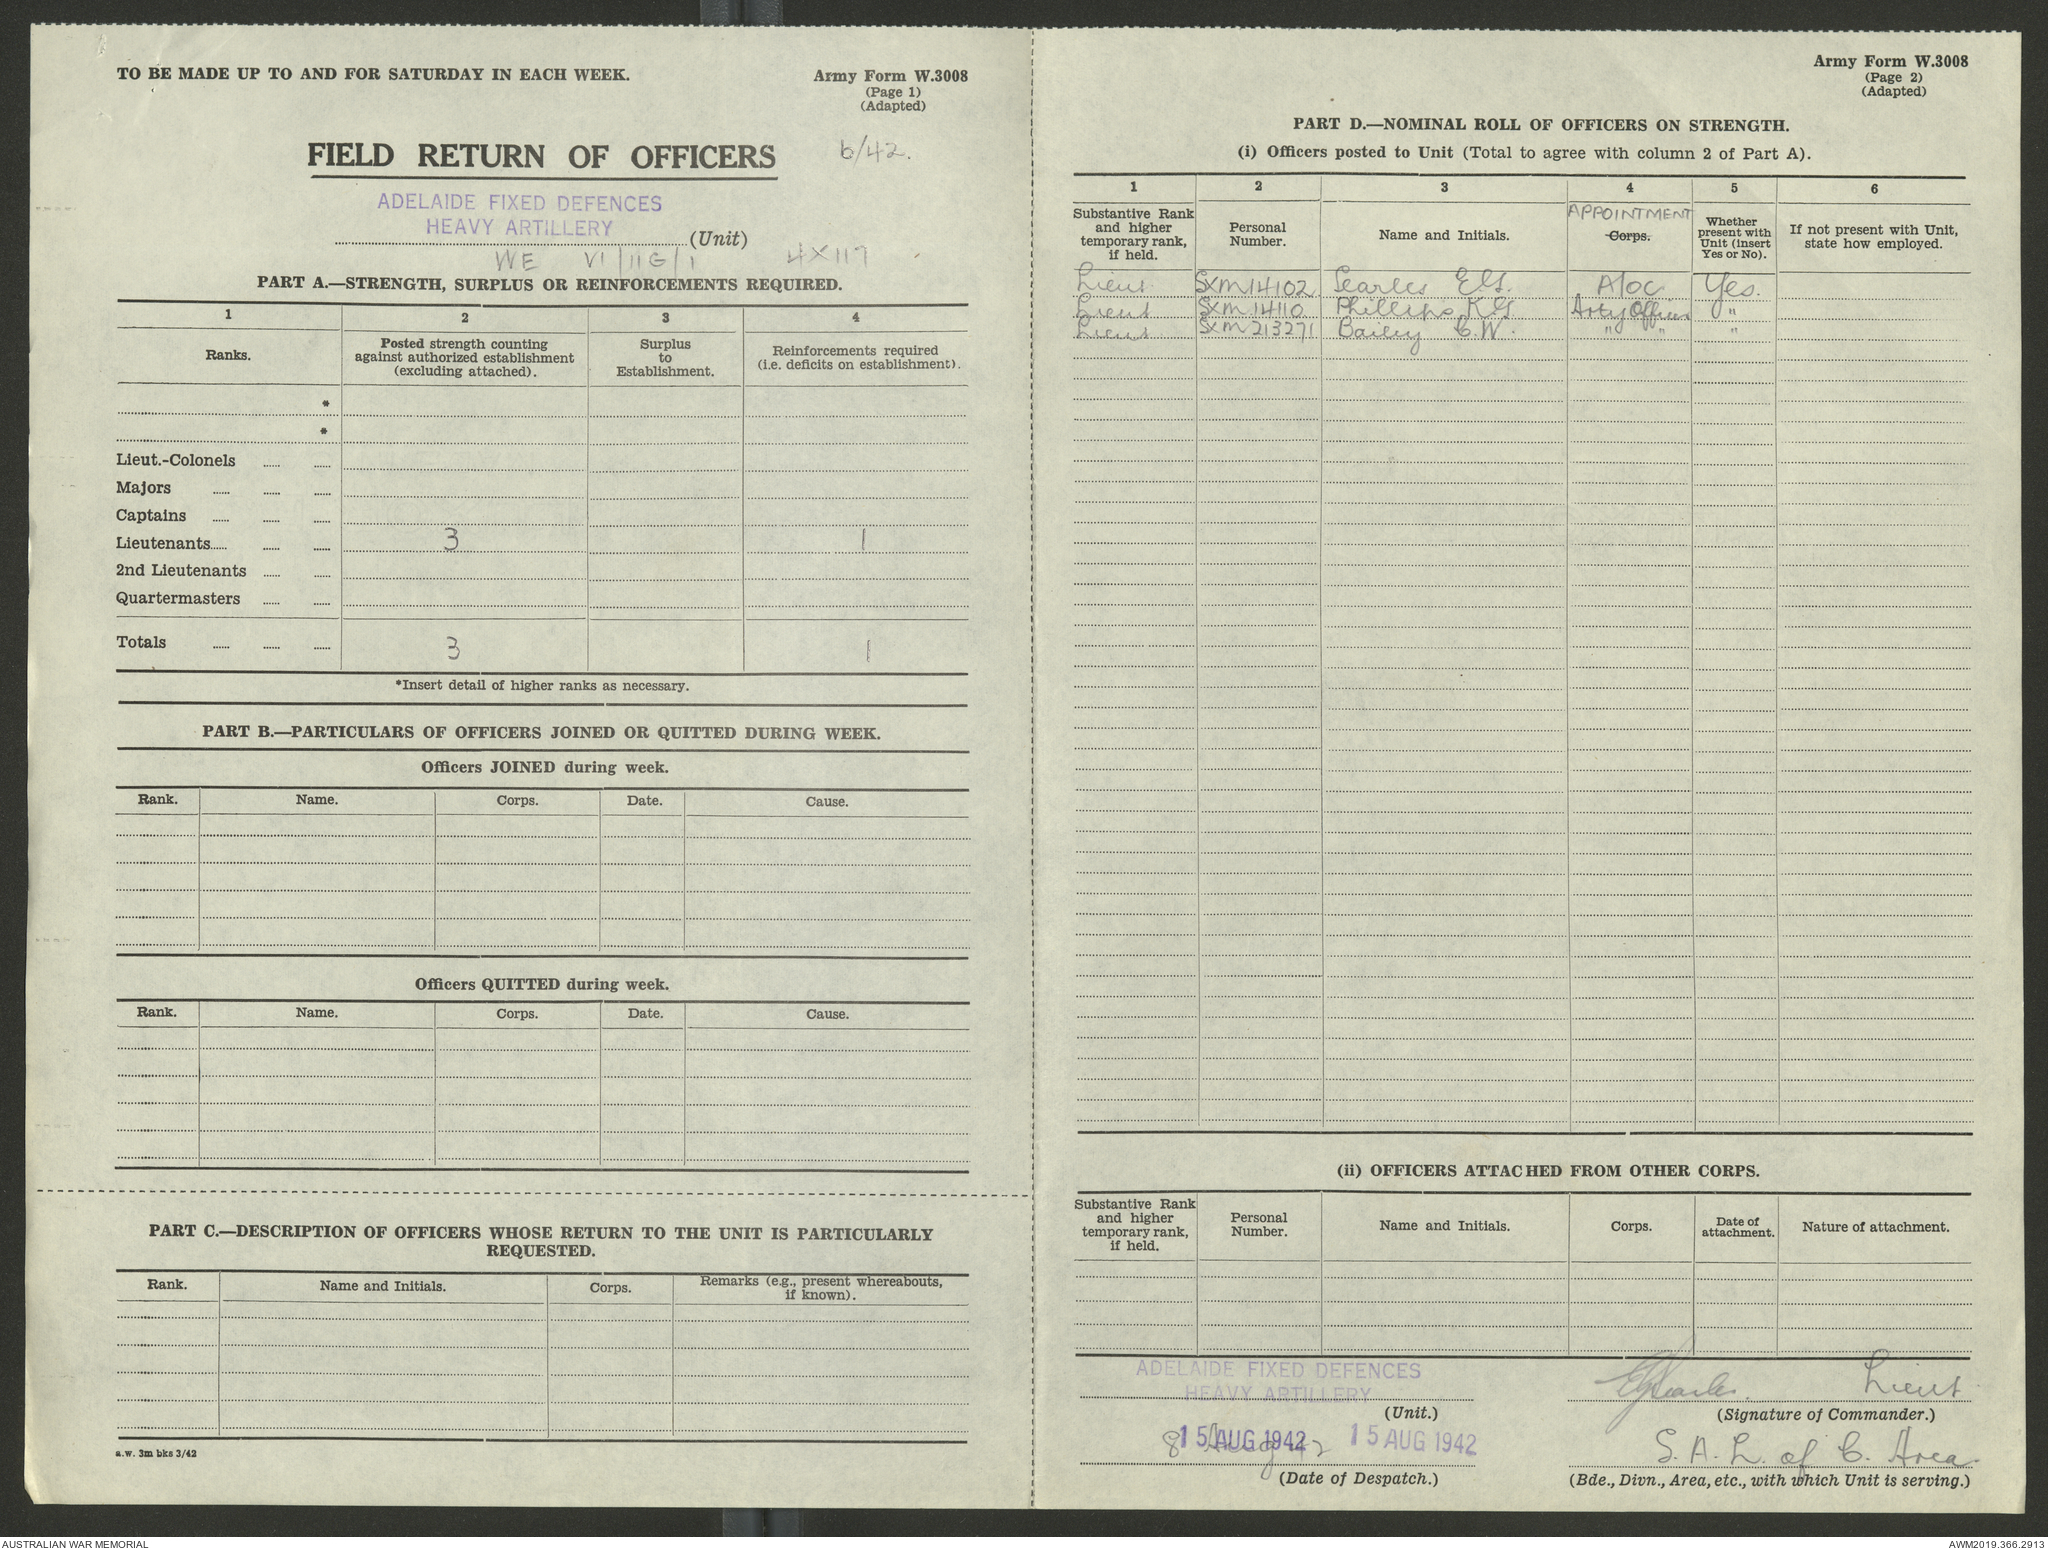 TO BE MADE UP TO AND FOR SATURDAY IN EACH WEEK.
Army Form W.3008
(Page 1)
(Adapted)
FIELD RETURN OF OFFICERS
6/42.
ADELAIDE FIXED DEFENCES
HEAVY ARTILLERY
(Unit)
WE VI/11G/1 4X117
PART A.—STRENGTH, SURPLUS OR REINFORCEMENTS REQUIRED.
1 2 3 4
Ranks.
Posted strength counting
against authorized establishment
(excluding attached).
Surplus
to
Establishment.
Reinforcements required
(i.e. deficits on establishment).
*
*
Lieut.-Colonels
Majors
Captains
Lieutenants 3 1
2nd Lieutenants
Quartermasters
Totals 3 1
*Insert detail of higher ranks as necessary.
PART B.—PARTICULARS OF OFFICERS JOINED OR QUITTED DURING WEEK.
Officers JOINED during week.
Rank. Name. Corps. Date. Cause.
Officers QUITTED during week.
Rank. Name. Corps. Date. Cause.
PART C.—DESCRIPTION OF OFFICERS WHOSE RETURN TO THE UNIT IS PARTICULARLY
REQUESTED.
Rank. Name and Initials. Corps.
Remarks (e.g., present whereabouts,
if known).
a.w. 3m bks 3/42
Army Form W.3008
(Page 2)
(Adapted)
PART D.—NOMINAL ROLL OF OFFICERS ON STRENGTH.
(i) Officers posted to Unit (Total to agree with column 2 of Part A).
1 2 3 4 5 6
Substantive Rank
and higher
temporary rank,
if held.
Personal
Number.
Name and Initials.
APPOINTMENT
Corps.
Whether
present with
Unit (insert
Yes or No).
If not present with Unit,
state how employed.
Lieut SXM14102 Searles E.G. A/OC Yes.
Lieut SXM14110 Phillips K.G. Arty Officer "
Lieut SXM213271 Bailey C.W. " " "
(ii) OFFICERS ATTACHED FROM OTHER CORPS.
Substantive Rank
and higher
temporary rank,
if held.
Personal
Number.
Name and Initials.
Corps.
Date of
attachment.
Nature of attachment.
ADELAIDE FIXED DEFENCES
HEAVY ARTILLERY
(Unit.)
EGSearles. Lieut
(Signature of Commander.)
8 Aug 42 15 AUG 1942 15 AUG 1942
(Date of Despatch.)
S.A. L. of C. Area.
(Bde., Divn., Area, etc., with which Unit is serving.)
AUSTRALIAN WAR MEMORIAL
AWM2019.366.2913